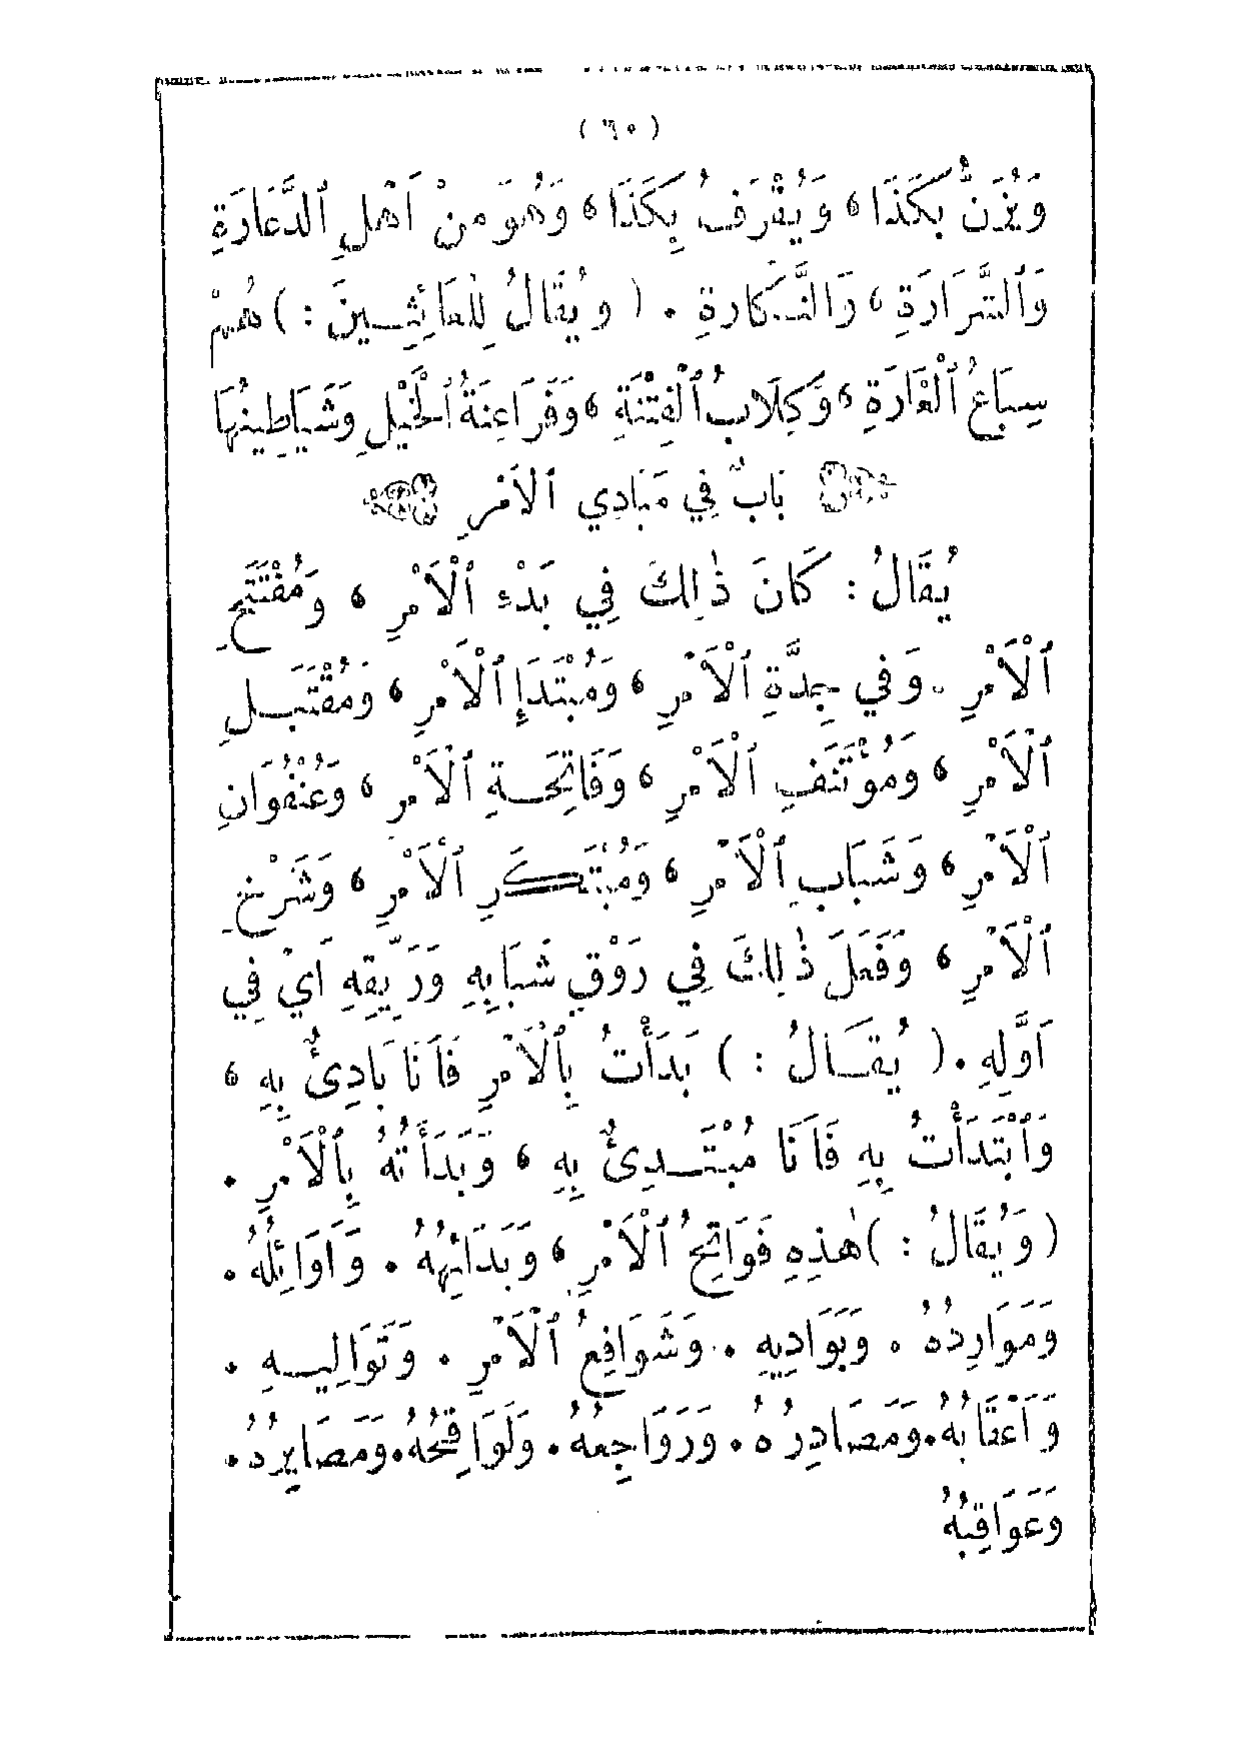 (٦٠)
وَيُزَنُّ بِكَذَا، وَيُقْرَفُ بِكَذَا، وَهُوَ مِنْ اَهْلِ ٱلدَّعَارَةِ
وَٱلشَّرَارَةِ، وَالنَّكَارةِ. (ويُقَالُ لِلْعَائِثِينَ:) هُمْ
سِبَاعُ ٱلْغَارَةِ، وَكِلَابُ ٱلْفِتْنَةِ، وَفَرَاعِنَةُ ٱلْخَيْلِ وَشَيَاطِينُهَا
بَابٌ فِي مَبَادِي ٱلاَمْرِ
يُقَالُ: كَانَ ذٰلِكَ فِي بَدْءِ ٱلْاَمْرِ، وَمُفْتَتَحِ
ٱلْاَمْرِ. وَفِي جِدَّةِ ٱلْاَمْرِ، وَمُبْتَدَإِ ٱلْاَمْرِ، وَمُقْتَبَلِ
ٱلْاَمْرِ، وَمُؤْتَنَفِ ٱلْاَمْرِ، وَفَاتِحَةِ ٱلْاَمْرِ، وَعُنْفُوَانِ
ٱلْاَمْرِ، وَشَبَابِ ٱلْاَمْرِ، وَمُبْتَكَرِ ٱلْاَمْرِ، وَشَرْخِ
ٱلْاَمْرِ، وَفَعَلَ ذٰلِكَ فِي رَوْقِ شَبَابِهِ وَرَيِّقِهِ اَيْ فِي
اَوَّلِهِ. (يُقَالُ:) بَدَأْتُ بِٱلْاَمْرِ فَاَنَا بَادِئٌ بِهِ،
وَٱبْتَدَأْتُ بِهِ فَاَنَا مُبْتَدِئٌ بِهِ، وَبَدَأَتُهُ بِٱلْاَمْرِ.
(وَيُقَالُ:) هٰذِهِ فَوَاتِحُ ٱلْاَمْرِ، وَبَدَائِهُهُ. وَاَوَائِلُهُ.
وَمَوَارِدُهُ. وَبَوَادِيهِ. وَشَوَافِعُ ٱلْاَمْرِ. وَتَوَالِيهِ.
وَاَعْقَابُهُ. وَمَصَادِرُهُ. وَرَوَاجِعُهُ. وَلَوَاقِحُهُ. وَمَصَايِرُهُ.
وَعَوَاقِبُهُ